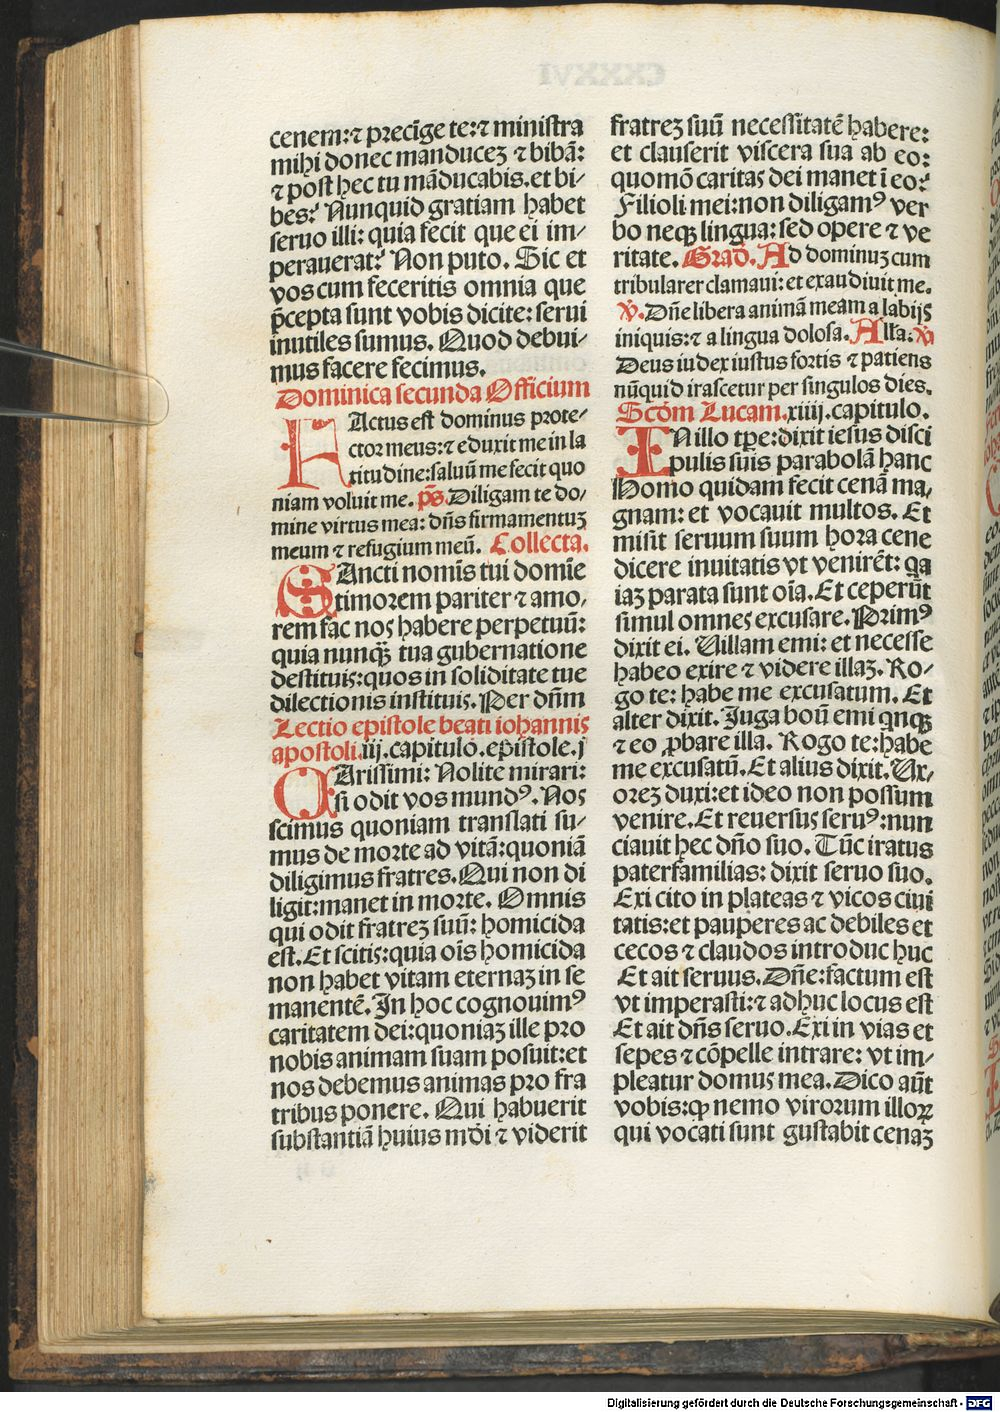 cenem:⁊ p̱recīge te:⁊ miniſtra
mihi donec manducez ⁊ bibā:
⁊ poſt hec tu māducabis.et bi-
bes? Nunquid gratiam habet
ſeruo illi: quia fecit que ei im-
perauerat? Non puto. Sic et
vos cum feceritis omnia que
p̄cepta ſunt vobis dicite: ſerui
inutiles ſumus. Quod debui-
mus facere fecimus.
Dominica ſecunda Officium
FActus eſt dominus prote-
ctor meus:⁊ eduxit me in la
titudine:ſaluū me fecit quo
niam voluit me. pṡ. Diligam te do-
mine virtus mea: dn̄s firmamentuz
meum ⁊ refugium meū. Collecta.
SAncti nomīs tui domīe
timorem pariter ⁊ amo-
rem fac nos habere perpetuū:
quia nunꝗ̄ tua gubernatione
deſtituis:quos in ſoliditate tue
dilectionis inſtituis. Per dn̄m
Lectio epiſtole beati iohannis
apoſtoli.iij.capitulo.epiſtole.j
CAriſſimi: Nolite mirari:
ſi odit vos mundꝰ. Nos
ſcimus quoniam tranſlati ſu-
mus de morte ad vitā:quoniā
diligimus fratres. Qui non di
ligit:manet in morte. Omnis
qui odit fratrez ſuū: homicida
eſt. Et ſcitis:quia oīs homicida
non habet vitam eternaz in ſe
manentē. In hoc cognouimꝰ
caritatem dei:quoniaz ille pro
nobis animam ſuam poſuit:et
nos debemus animas pro fra
tribus ponere. Qui habuerit
ſubſtantiā huius mūdi ⁊ viderit
fratrez ſuū neceſſitatē habere:
et clauſerit viſcera ſua ab eo:
quomō caritas dei manet ī eo?
Filioli mei:non diligamꝰ ver
bo neqꝫ lingua: ſed opere ⁊ ve
ritate. Grad̄. Ad dominuz cum
tribularer clamaui: et exaudiuit me.
℣. Dn̄e libera animā meam a labijs
iniquis:⁊ a lingua doloſa. Alla. ℣
Deus iudex iuſtus fortis ⁊ patiens
nūquid iraſcetur per ſingulos dies.
Scd̄m Lucam.xiiij.capitulo.
IN illo tꝑe:dixit ieſus diſci
pulis ſuis parabolā hanc
Homo quidam fecit cenā ma-
gnam: et vocauit multos. Et
miſit ſeruum ſuum hora cene
dicere inuitatis vt venirēt: qa
iaz parata ſunt oīa. Et ceperūt
ſimul omnes excuſare. Primꝰ
dixit ei. Uillam emi: et neceſſe
habeo exire ⁊ videre illaz. Ro-
go te: habe me excuſatum. Et
alter dixit. Juga boū emi qnqꝫ
⁊ eo ꝓbare illa. Rogo te:habe
me excuſatū. Et alius dixit. Ux-
orez duxi:et ideo non poſſum
venire. Et reuerſus ſeruꝰ:nun
ciauit hec dn̄o ſuo. Tūc iratus
paterfamilias: dixit ſeruo ſuo.
Exi cito in plateas ⁊ vicos ciui
tatis:et pauperes ac debiles et
cecos ⁊ claudos introduc huc
Et ait ſeruus. Dn̄e:factum eſt
vt imperaſti:⁊ adhuc locus eſt
Et ait dn̄s ſeruo. Exi in vias et
ſepes ⁊ cōpelle intrare: vt im-
pleatur domus mea. Dico aūt
vobis:ꝙ nemo virorum illoꝝ
qui vocati ſunt guſtabit cenaz
Digitalisierung gefördert durch die Deutsche Forschungsgemeinschaft - DFG